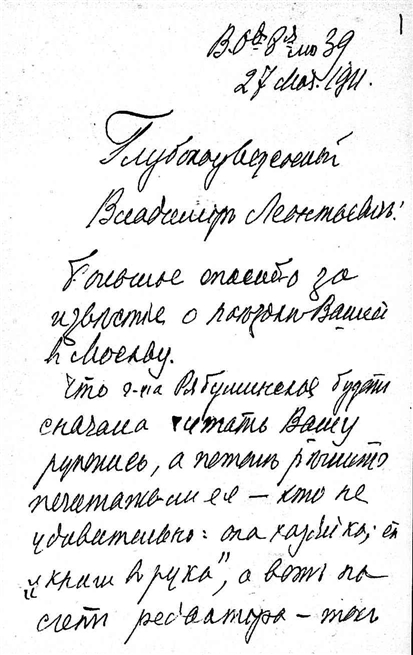 1
В. О. 8 л. 39
27 Мая 1911.
Глубокоуважаемый
Владимиръ Леонтьевичъ!
Большое спасибо за
извѣстіе о поѣздкѣ Вашей
въ Москву.
Что г-жа Рябушинская будетъ
сначала читать Вашу
рукопись, а потомъ рѣшитъ
печатать ли ее — это не
удивительно: она хозяйка; ей
и „книги въ руки", а вотъ на
счетъ редактора — то